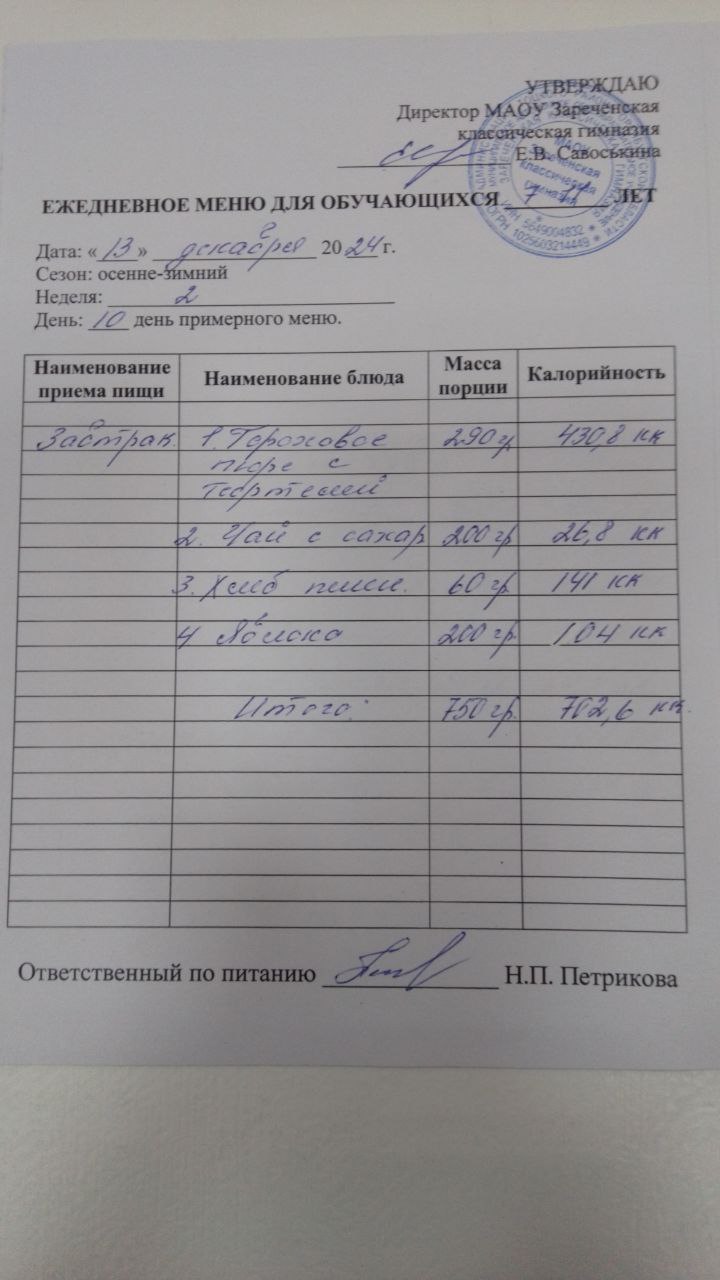 УТВЕРЖДАЮ
Директор МАОУ Зареченская
классическая гимназия
Е.В. Савоськина
МАОУ
Зареченская
классическая
гимназия
ИНН 5649004832 * ОГРН 1025603214449 *
ЕЖЕДНЕВНОЕ МЕНЮ ДЛЯ ОБУЧАЮЩИХСЯ 7-11 ЛЕТ
Дата: «13» декабря 2024 г.
Сезон: осенне-зимний
Неделя: 2
День: 10 день примерного меню.
Наименование приема пищи Наименование блюда Масса порции Калорийность
Завтрак. 1. Гороховое 290 гр 430,8 кк
пюре с
тефтелей
2. Чай с сахар 200 гр 26,8 кк
3. Хлеб пшен. 60 гр 141 кк
4 Яблока 200 гр 104 кк
Итого: 750 гр. 702,6 кк.
Ответственный по питанию Н.П. Петрикова